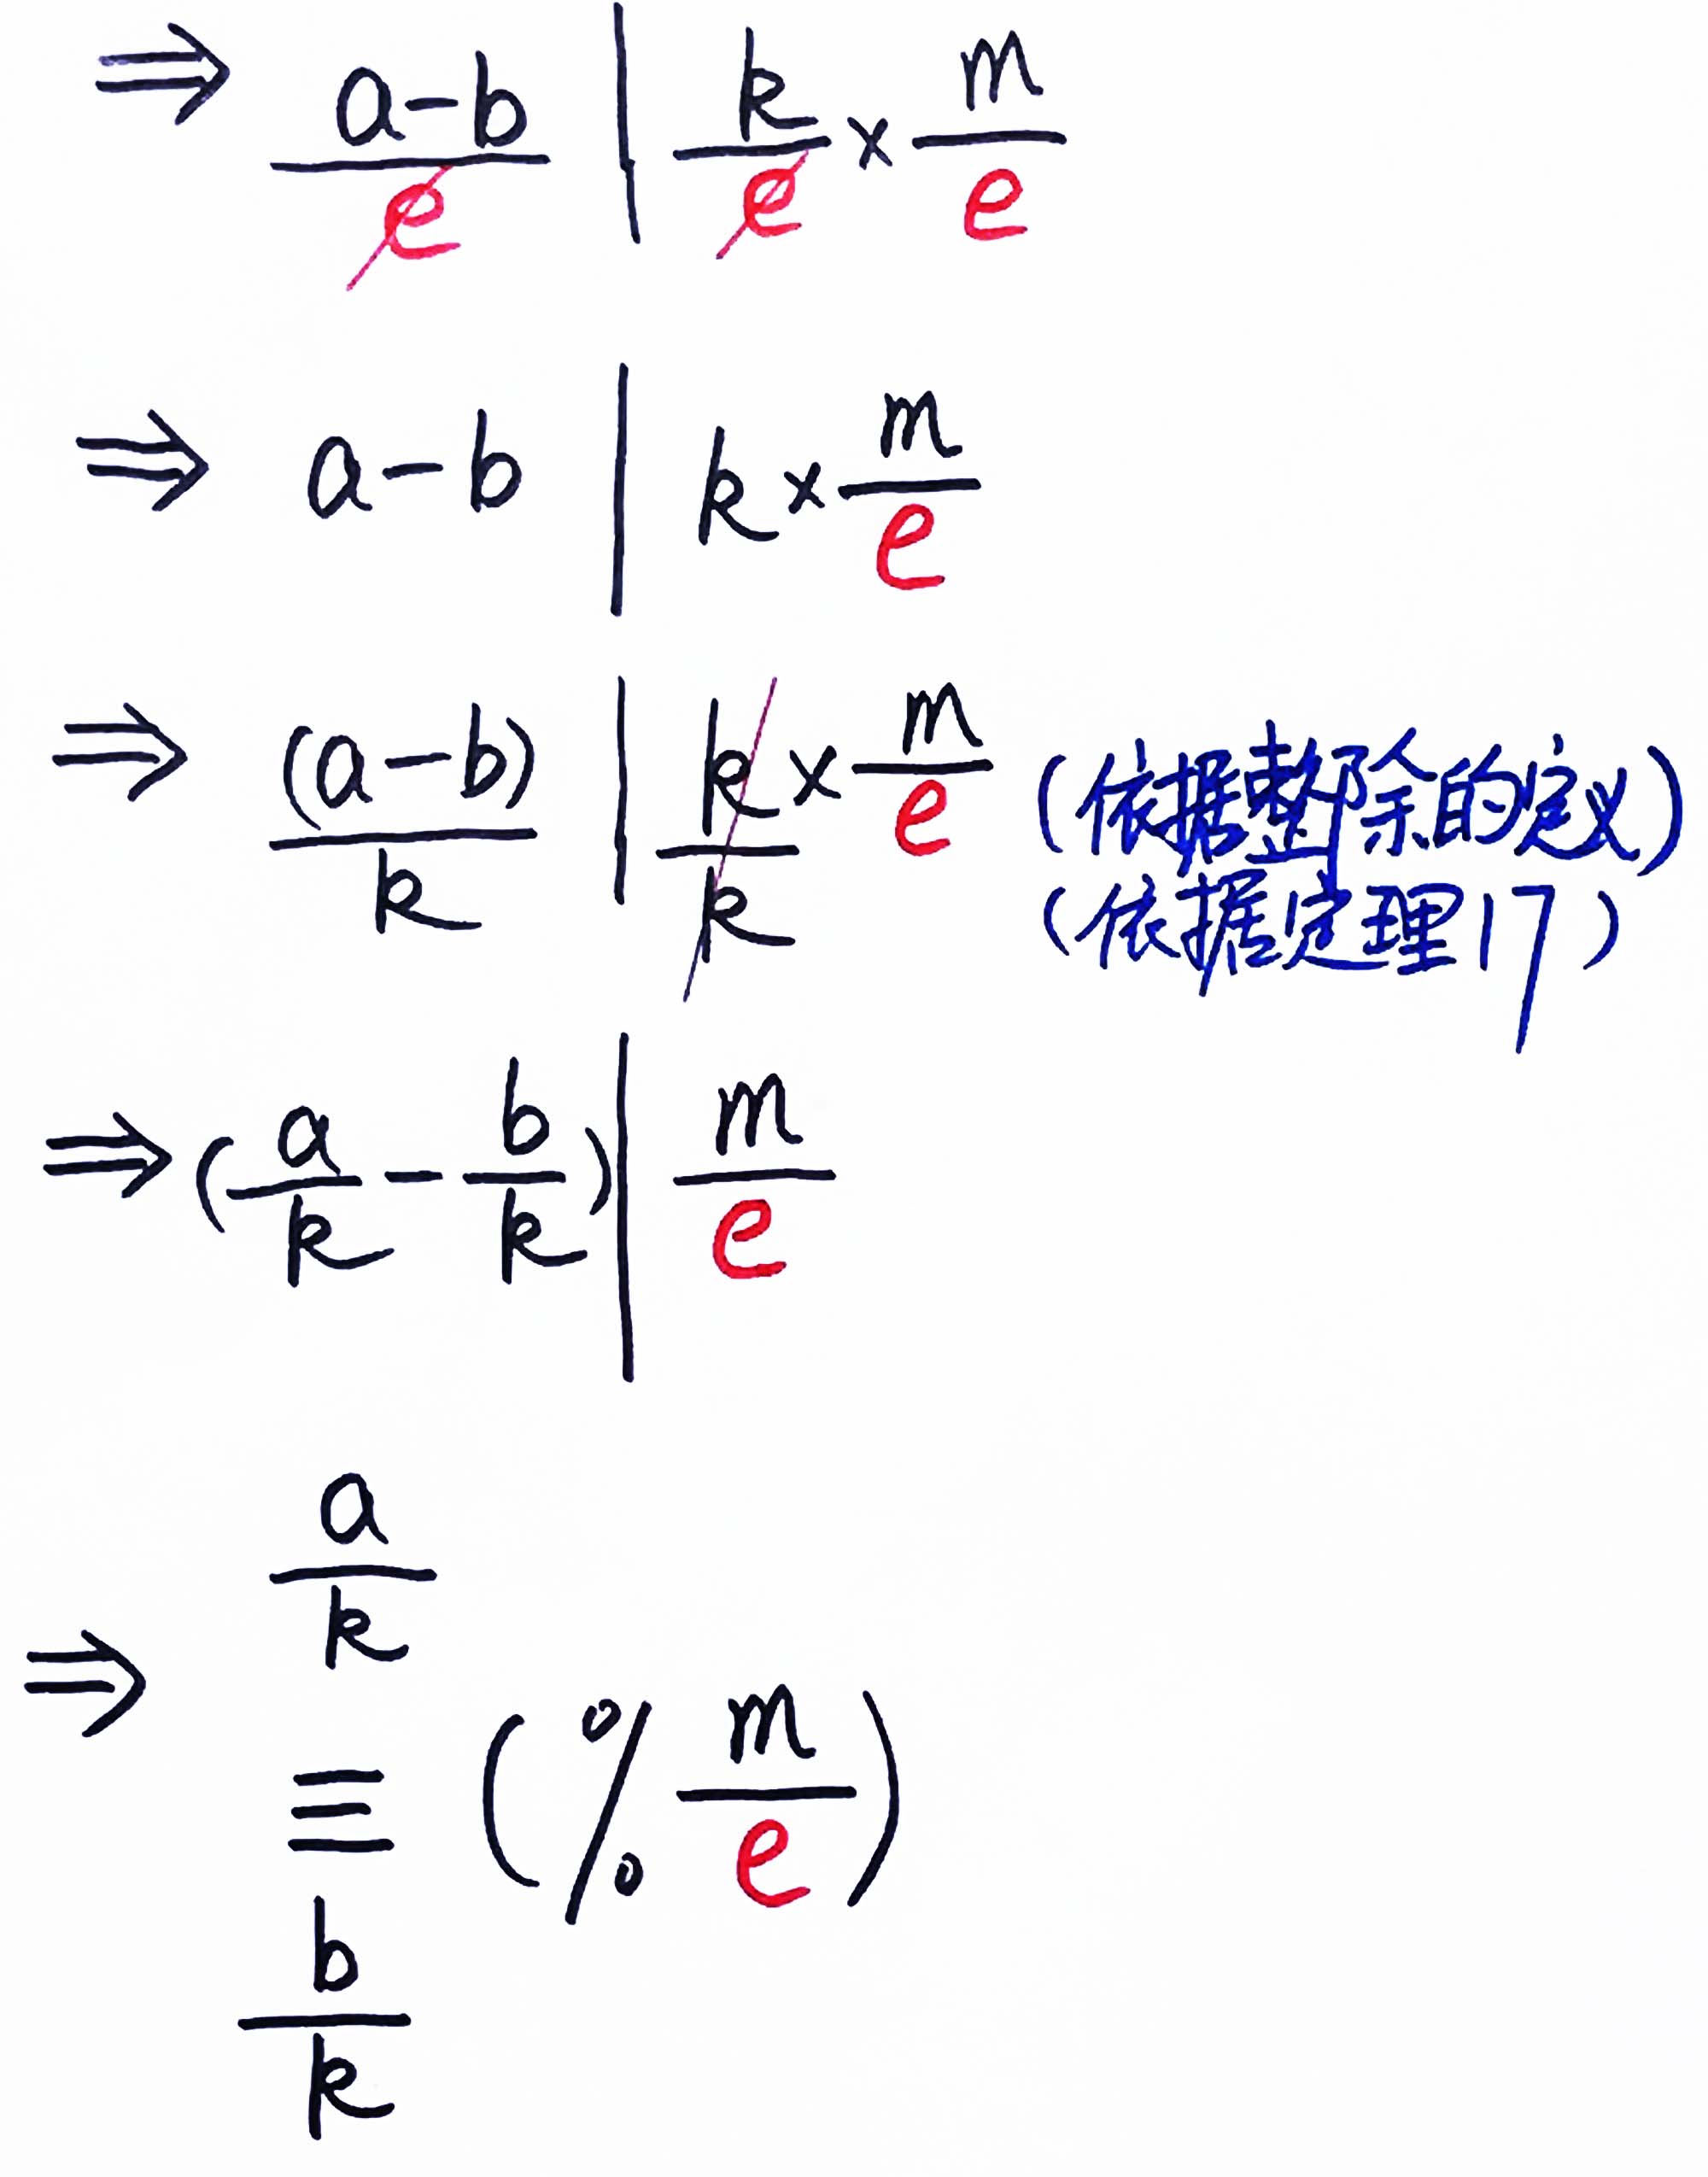 ⇒ (a-b)/e | k/e × m/e
⇒ a-b | k × m/e
⇒ (a-b)/k | k/k × m/e (依据整除的定义)
(依据定理17)
⇒ (a/k - b/k) | m/e
a/k
⇒ ≡ (% m/e)
b/k